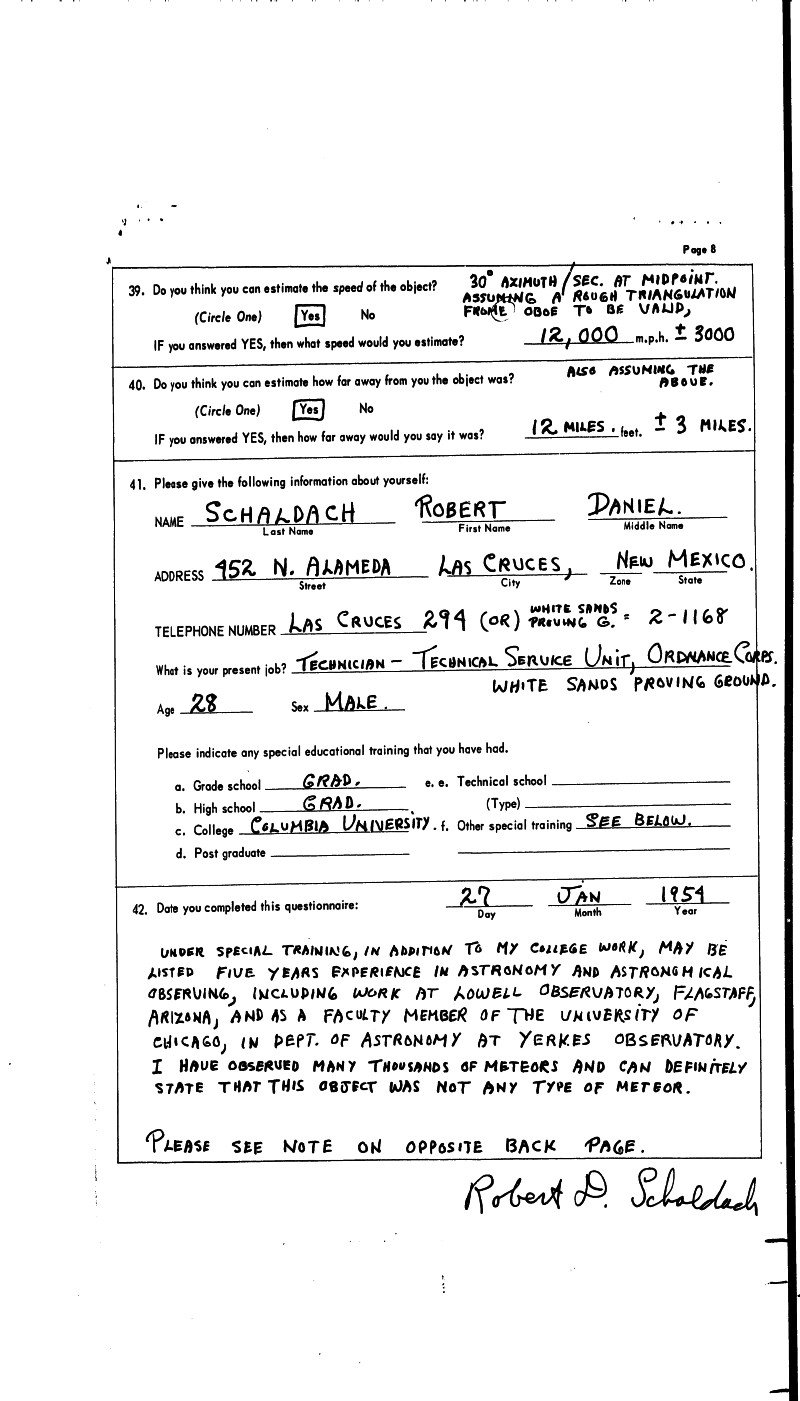 Page 8
39. Do you think you can estimate the speed of the object? 30° AZIMUTH/SEC. AT MIDPOINT.
ASSUMING A ROUGH TRIANGULATION
(Circle One) Yes No FROM OBOE TO BE VALID,
IF you answered YES, then what speed would you estimate? 12,000 m.p.h. ± 3000
40. Do you think you can estimate how far away from you the object was? ALSO ASSUMING THE
ABOVE.
(Circle One) Yes No
IF you answered YES, then how far away would you say it was? 12 MILES. feet. ± 3 MILES.
41. Please give the following information about yourself:
NAME SCHALDACH ROBERT DANIEL.
Last Name First Name Middle Name
ADDRESS 952 N. ALAMEDA LAS CRUCES, NEW MEXICO.
Street City Zone State
TELEPHONE NUMBER LAS CRUCES 294 (OR) WHITE SANDS PROVING G. = 2-1168
What is your present job? TECHNICIAN - TECHNICAL SERVICE UNIT, ORDNANCE CORPS.
WHITE SANDS PROVING GROUND.
Age 28 Sex MALE.
Please indicate any special educational training that you have had.
a. Grade school GRAD. e. e. Technical school
b. High school GRAD. (Type)
c. College COLUMBIA UNIVERSITY. f. Other special training SEE BELOW.
d. Post graduate
42. Date you completed this questionnaire: 27 JAN 1954
Day Month Year
UNDER SPECIAL TRAINING, IN ADDITION TO MY COLLEGE WORK, MAY BE
LISTED FIVE YEARS EXPERIENCE IN ASTRONOMY AND ASTRONOMICAL
OBSERVING, INCLUDING WORK AT LOWELL OBSERVATORY, FLAGSTAFF,
ARIZONA, AND AS A FACULTY MEMBER OF THE UNIVERSITY OF
CHICAGO, IN DEPT. OF ASTRONOMY AT YERKES OBSERVATORY.
I HAVE OBSERVED MANY THOUSANDS OF METEORS AND CAN DEFINITELY
STATE THAT THIS OBJECT WAS NOT ANY TYPE OF METEOR.
PLEASE SEE NOTE ON OPPOSITE BACK PAGE.
Robert D. Schaldach